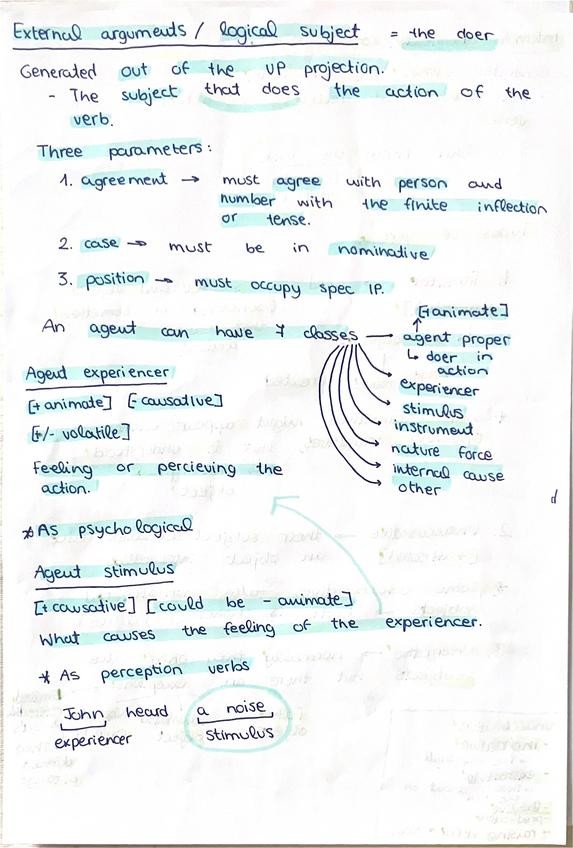 External arguments / logical subject = the doer
Generated out of the VP projection.
- The subject that does the action of the
verb.
Three parameters:
1. agreement → must agree with person and
number with the finite inflection
or tense.
2. case → must be in nominative
3. position → must occupy spec IP.
[+animate]
An agent can have 7 classes → agent proper
↳ doer in
action
experiencer
stimulus
instrument
nature force
internal cause
other
Agent experiencer
[+ animate] [- causative]
[+/- volatile]
Feeling or percieving the
action.
* As psychological
Agent stimulus
[+ causative] [could be - animate]
What causes the feeling of the experiencer.
* As perception verbs
John heard a noise
experiencer stimulus
d